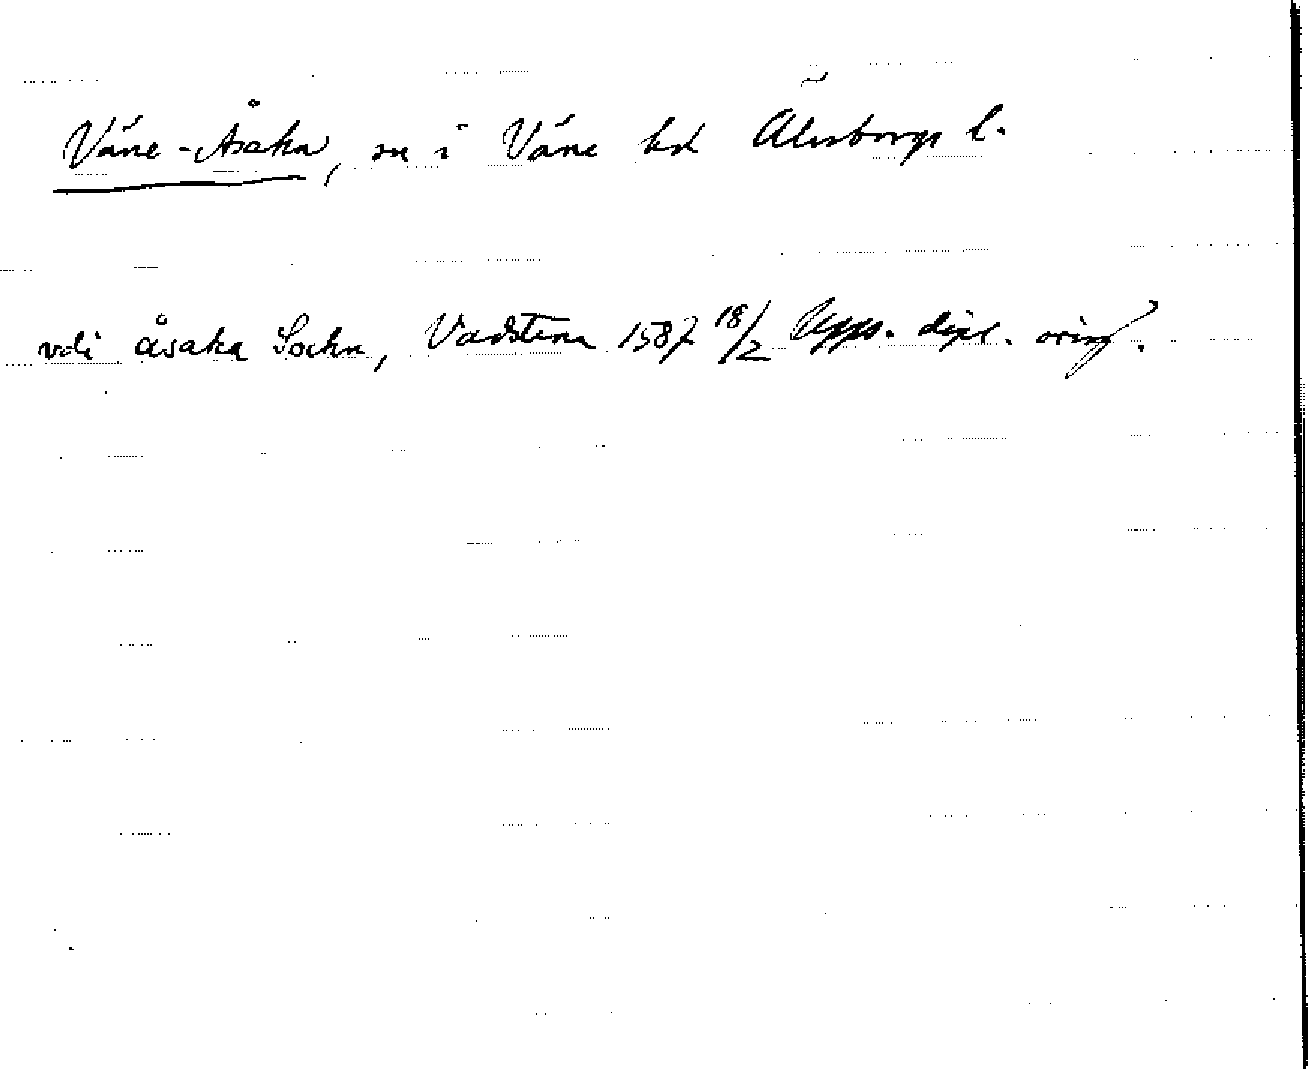 Väne-Åsaka, sn i Väne hd Älvsborgs l.
vdi åsaka Sochn, Vadstena 1587 18/2 Upps. dipl. orig.